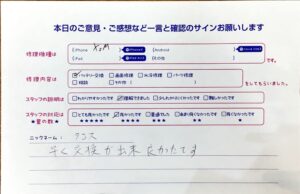 本日のご意見・ご感想など一言と確認のサインお願いします
修理機種は
iPhone XsM
iPad
Android
その他
修理内容は
バッテリー交換 画面修理 水没修理 パーツ修理
相談 その他
をしてもらいました。
スタッフの説明は
わかりやすかったです 理解できました 少しわかりにくかったです 難しかったです
スタッフの対応は
★星の数★
とても良かったです 良かったです 普通でした
★★★★★ ★★★★ ★★★ ★★ ★
ニックネーム:
早く交換が出来良かったです